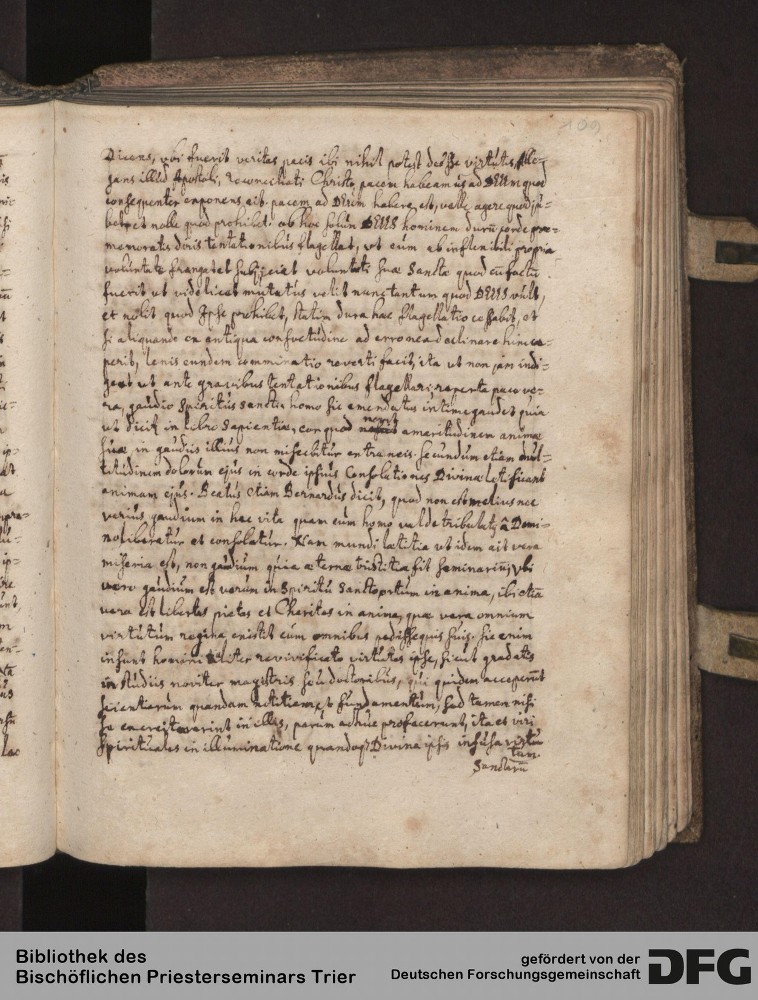 109
Dicens, vbi fuerit veritas pacis ibi nihil potest deesse virtutis, Alle-
gans illud Apostoli, reconciliati Christo pacem habeamus ad DEUM quod
consequenter exponens ait, pacem ad DEUM habere est, velle agere quod ju-
bet, et nolle quod prohibet: ob hoc solum DEUS hominem durum corde præ-
memoratis duris tentationibus flagellat, ut eum ab inflexibili propria
voluntate frangat et subjiciat voluntati suæ Sanctæ quod cu factu
fuerit ut videlicet mutatus velit nunc tantum quod DEUS vult,
et nolit quod Ipse prohibet, statim dura hæc flagellatio cessabit, et
si aliquando ex antiqua consuetudine ad erronea declinare hinc cæ-
perit, lenis eundem comminatio reverti facit, ita ut non jam indi-
geat ut ante gravibus tentationibus flagellari; reperta pace ve-
ra, gaudio Spiritus Sancti homo sic emendatus intime gaudet quia
ut dicit in libro Sapientiæ, cor quod novit amaritudinem animæ
suæ in gaudiis illius non miscebitur extraneis. secundum etiam mul-
titudinem dolorum ejus in corde ipsius Consolationes Divinæ lætificant
animam ejus. Beatus etiam Bernardus dicit, quod non est melius nec
verius gaudium in hac vita quam cum homo valde tribulatq à Domi-
no liberatur et consolatur. Nam mundi lætitia ut idem ait vera
miseria est, non gaudium quia æternæ tristitiæ fit seminariu; vbi
vero gaudium est verum in Spiritu Sancto ortum in anima, ibi etia
vera est libertas pietas et Charitas in anima, quæ vera omnium
virtutum regina existit cum omnibus pedissequis suis. sic enim
insunt homini taliter revivificato virtutes ipse, sicut gradatis
in studiis noviter magistris seu doctoribus, qui quidem acceperut
scientiarum quandam notitiam, et fundamentum, sed tamen nisi
se exercitaverint in illis, parum adhuc profecerunt, ita et viri
spirituales in illuminatione quandoq Divina ipsis infusa virtu
tum
Sanctaru
Bibliothek des
Bischöflichen Priesterseminars Trier
gefördert von der
Deutschen Forschungsgemeinschaft
DFG